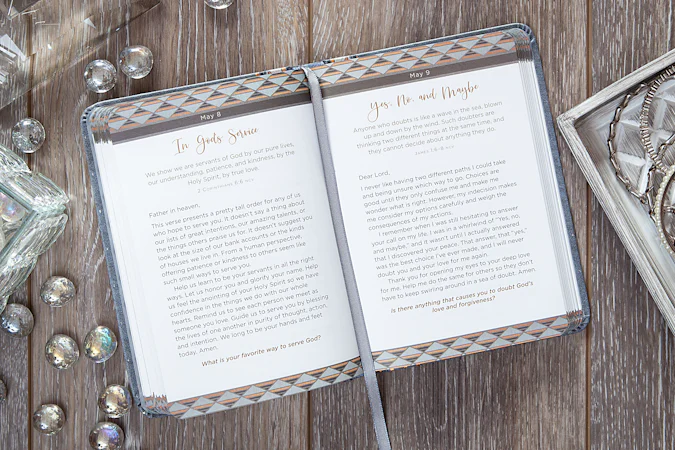 May 8
In God's Service
We show we are servants of God by our pure lives,
our understanding, patience, and kindness, by the
Holy Spirit, by true love.
2 Corinthians 6:6 NCV
Father in heaven,
This verse presents a pretty tall order for any of us
who hope to serve you. It doesn't say a thing about
our lists of great intentions, our amazing talents, or
the things others praise us for. It doesn't suggest you
look at the size of our bank accounts or the kinds
of houses we live in. From a human perspective,
offering patience or kindness to others seems like
such small ways to serve you.
Help us learn to be your servants in all the right
ways. Let us honor you and glorify your name. Help
us feel the anointing of your Holy Spirit so we have
confidence in the things we do with our whole
hearts. Remind us to see each person we meet as
someone you love. Guide us to serve you by blessing
the lives of one another in purity of thought, action,
and intention. We long to be your hands and feet
today. Amen.
What is your favorite way to serve God?
May 9
Yes, No, and Maybe
Anyone who doubts is like a wave in the sea, blown
up and down by the wind. Such doubters are
thinking two different things at the same time, and
they cannot decide about anything they do.
James 1:6-8 NCV
Dear Lord,
I never like having two different paths I could take
and being unsure which way to go. Choices are
good until they only confuse me and make me
wonder what is right. However, my indecision makes
me consider my options carefully and weigh the
consequences of my actions.
I remember when I was still hesitating to answer
your call on my life. I was in a whirlwind of "yes, no,
and maybe," and it wasn't until I actually answered
that I discovered your peace. That answer, that "yes,"
was the best choice I've ever made, and I will never
doubt you and your love for me again.
Thank you for opening my eyes to your deep love
for me. Help me do the same for others so they don't
have to keep swirling around in a sea of doubt. Amen.
Is there anything that causes you to doubt God's
love and forgiveness?